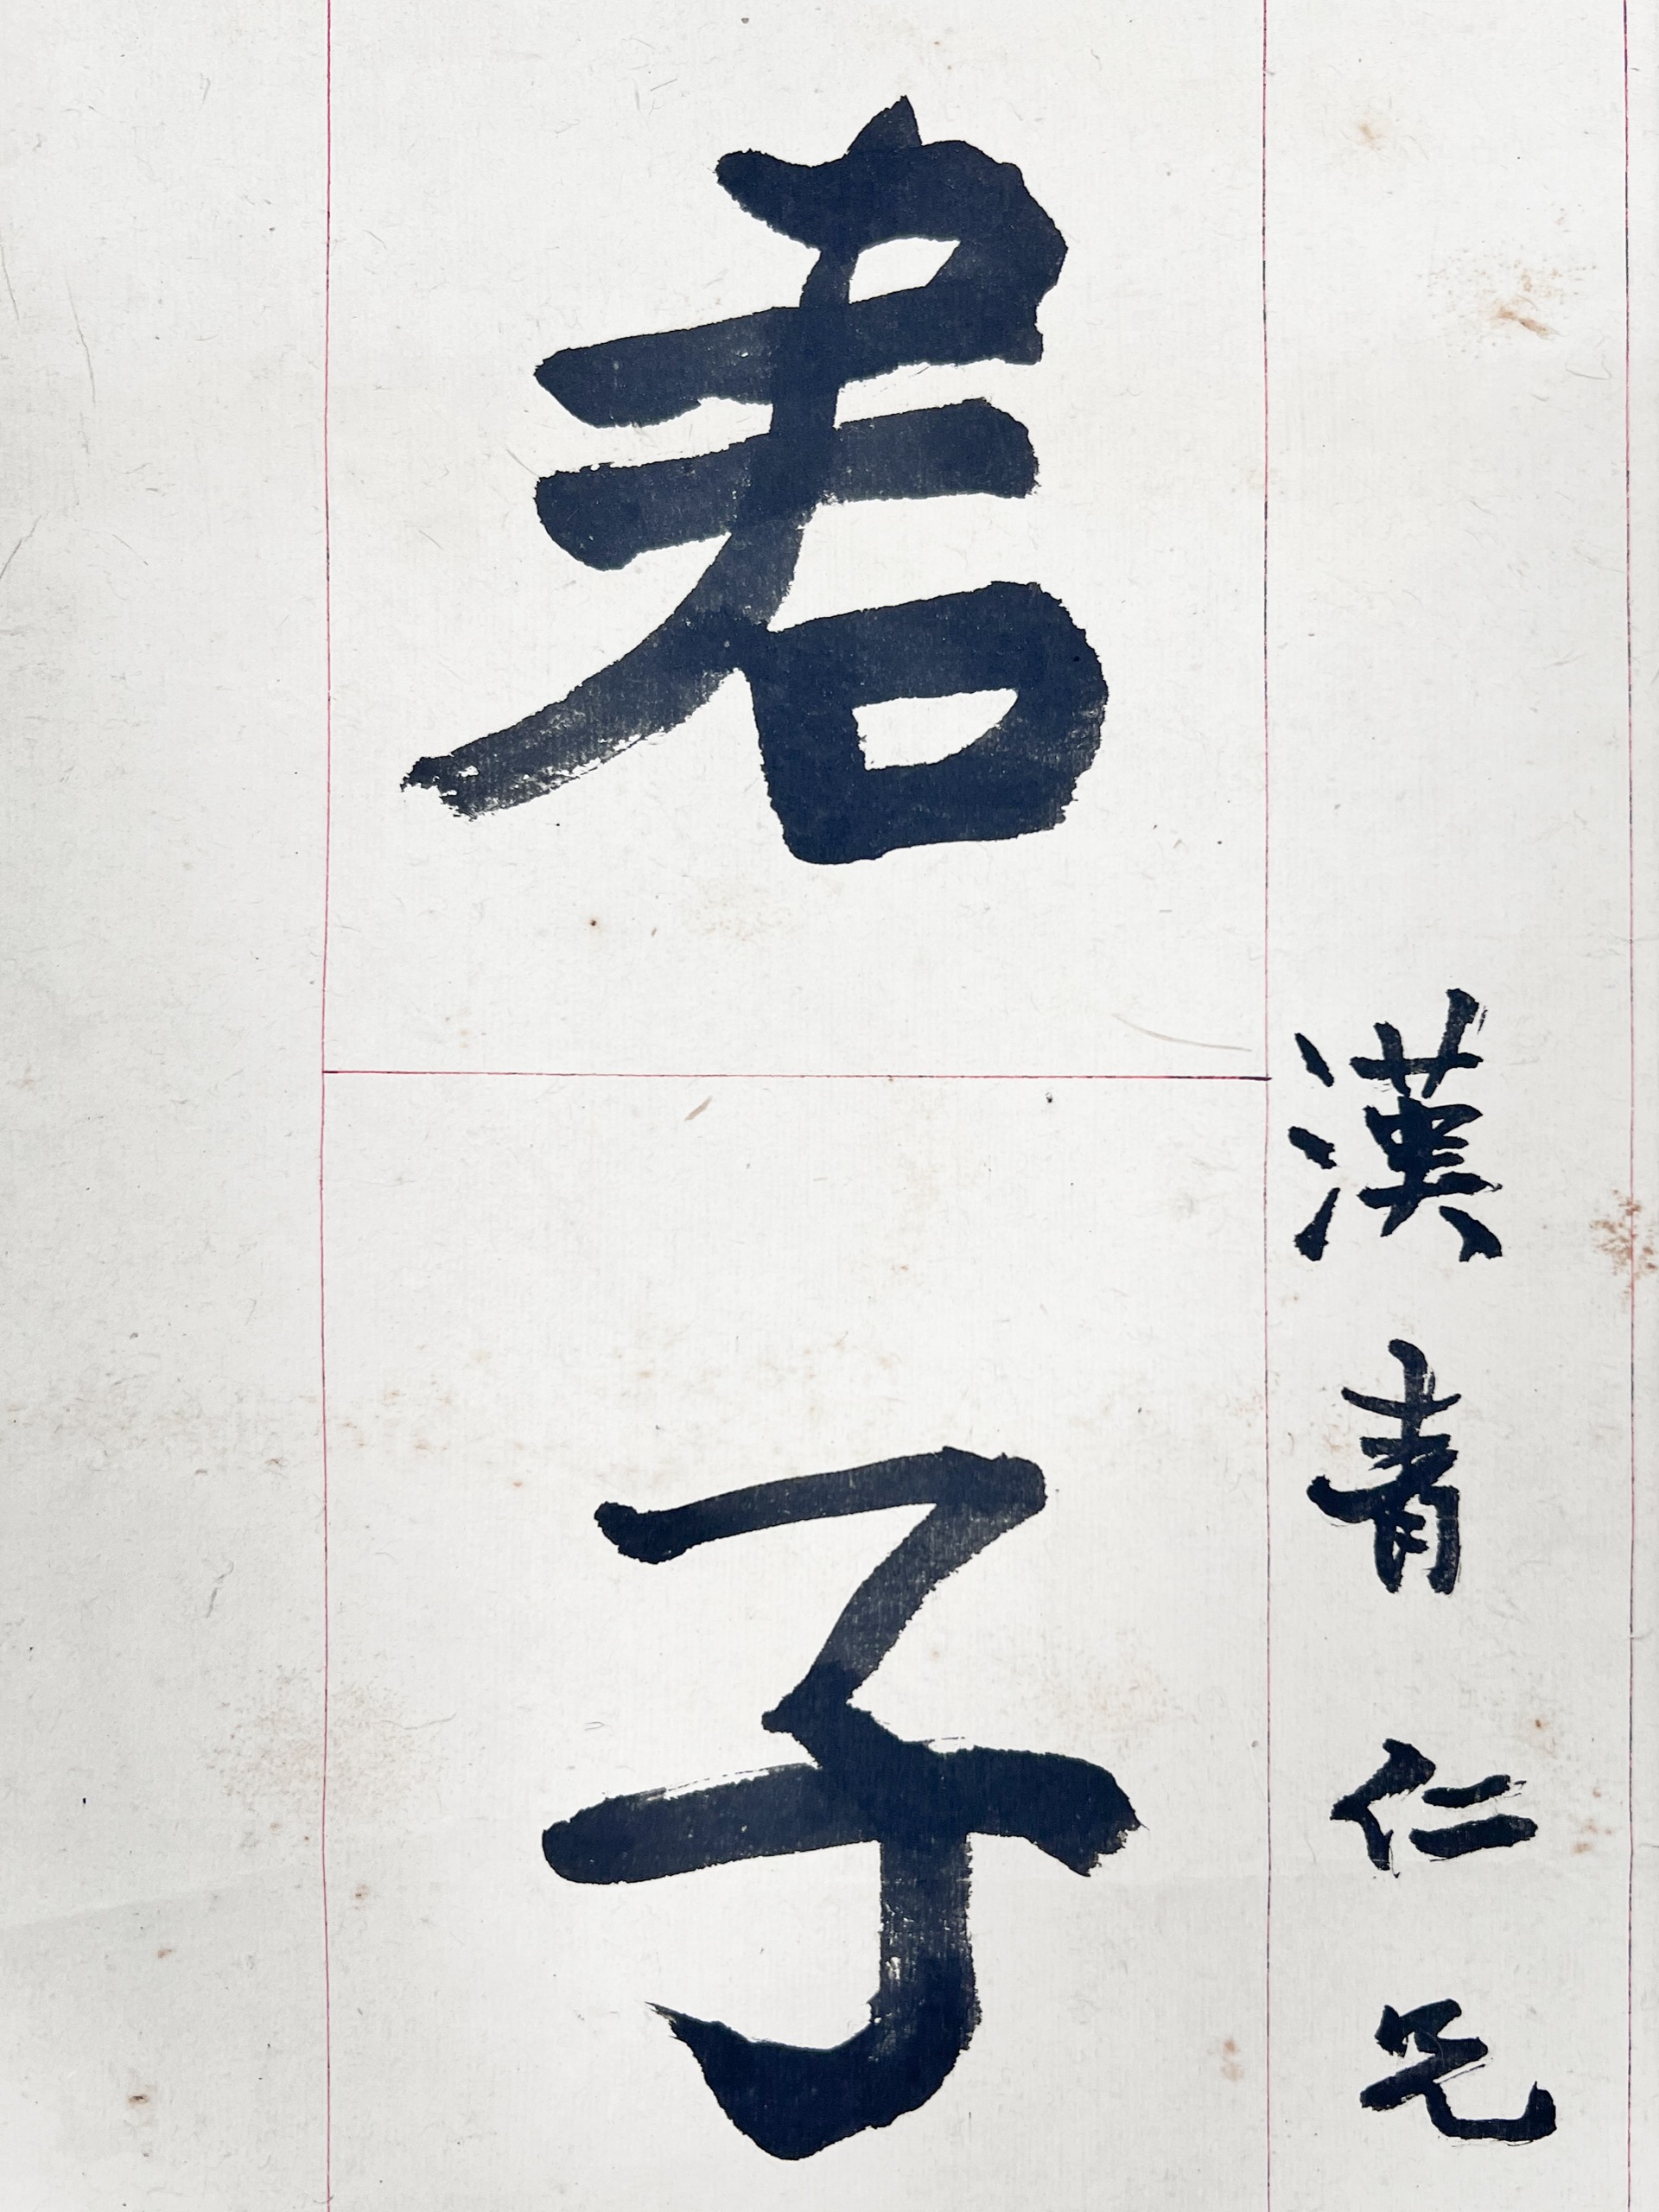 漢青仁兄
君子